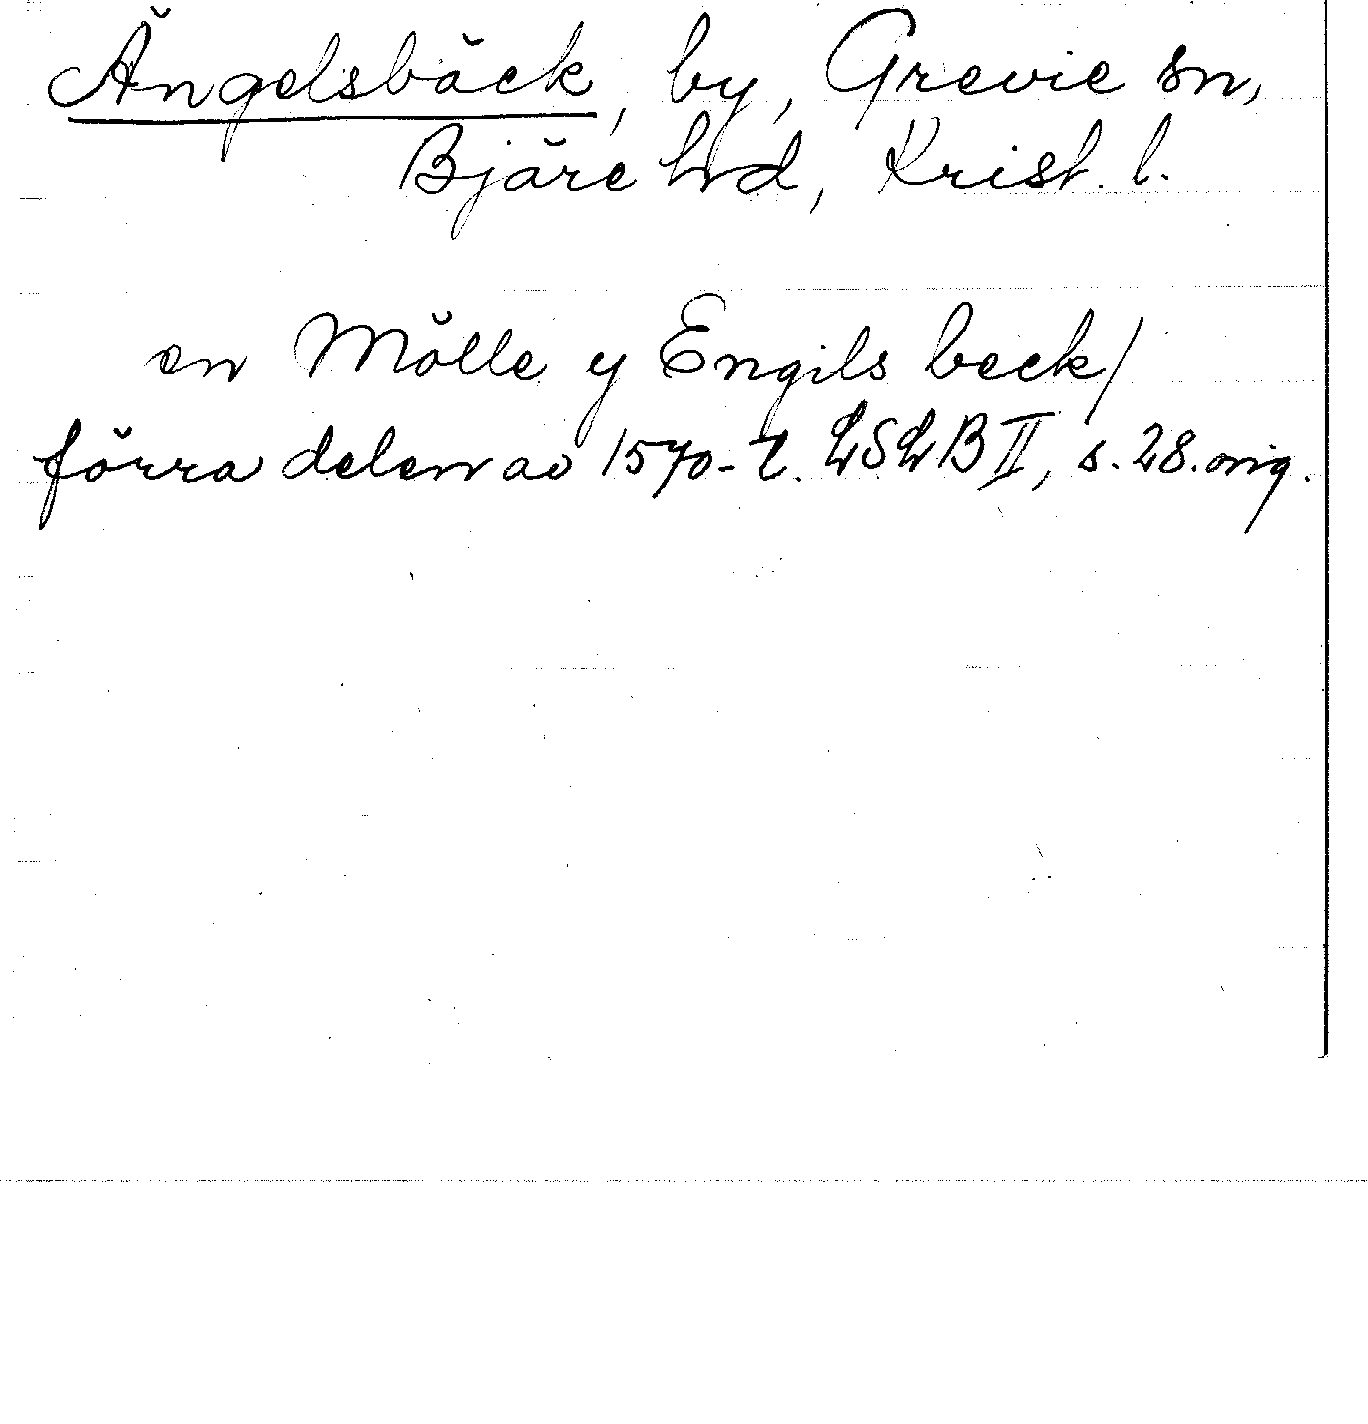 Ängelsbäck, by, Grevie sn,
Bjäre hrd, Krist. l.
en Mölle y Engils beck/
förra delen av 1570-t. LSLB II, s. 28. orig.